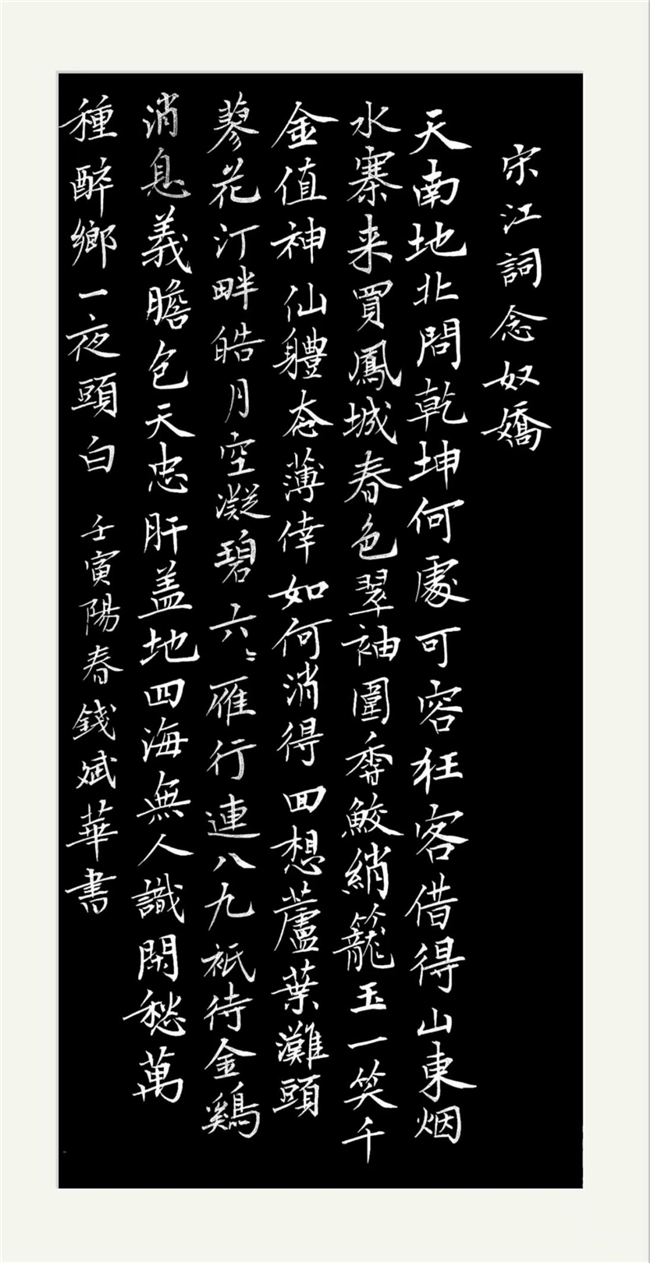 宋江詞念奴嬌
天南地北問乾坤何處可容狂客借得山東烟
水寨来買鳳城春色翠袖圍香鮫綃籠玉一笑千
金值神仙體态薄倖如何消得回想蘆葉灘頭
蓼花汀畔皓月空凝碧六〻雁行連八九祇待金鷄
消息義膽包天忠肝盖地四海無人識閑愁萬
種醉鄉一夜頭白 壬寅陽春錢斌華書